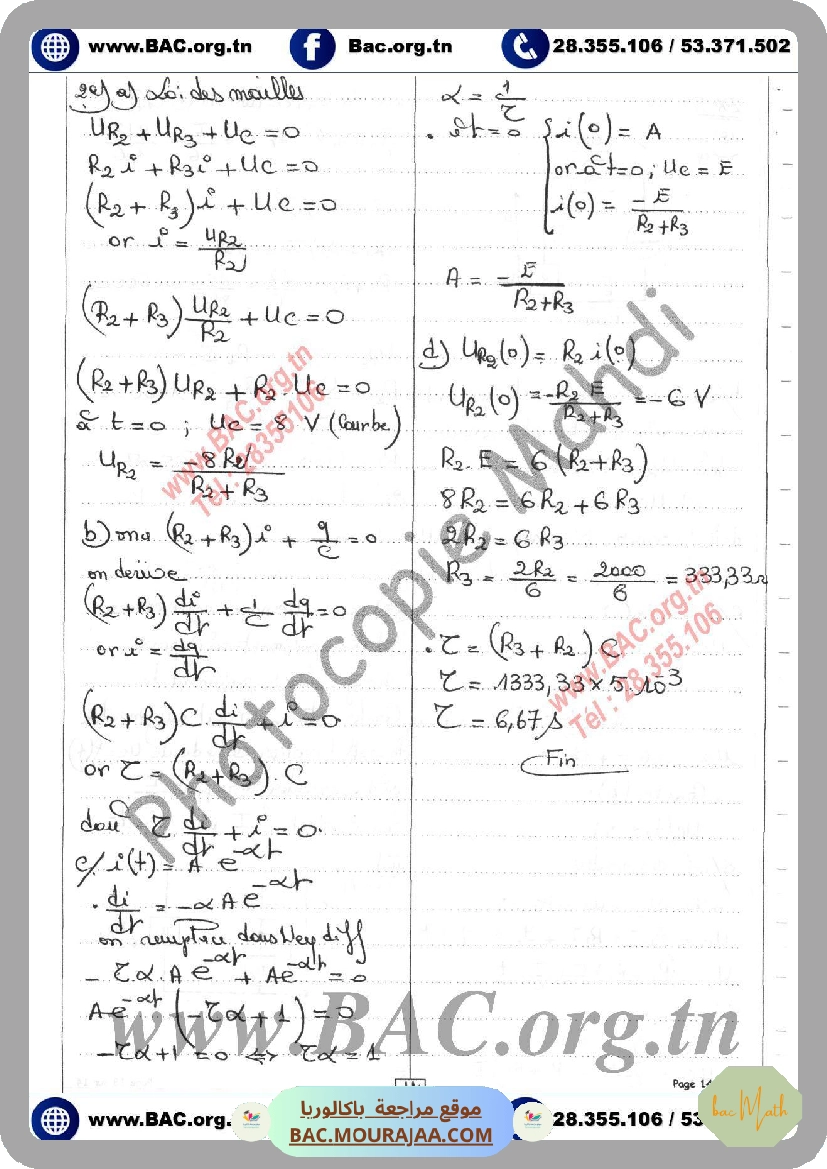 www.BAC.org.tn
Bac.org.tn
28.355.106 / 53.371.502
2°) a) Loi des mailles
UR2 + UR3 + Uc = 0
R2 i + R3 i + Uc = 0
(R2 + R3) i + Uc = 0
or i = UR2 / R2
(R2 + R3) UR2 / R2 + Uc = 0
(R2 + R3) UR2 + R2 . Uc = 0
à t = 0 ; Uc = 8 V (Courbe)
UR2 = 8 R2 / R2 + R3
b) on a (R2 + R3) i + q/C = 0
on derive
(R2 + R3) di/dt + 1/C dq/dt = 0
or i = dq/dt
(R2 + R3) C di/dt + i = 0
or τ = (R2 + R3) . C
dou τ di/dt + i = 0
c/ i(t) = A e^-αt
. di/dt = -α A e^-αt
on remplace dans diff
- τα . A e^-αt + A e^-αt = 0
A e^-αt (-τα + 1) = 0
-τα + 1 = 0 ⇔ τα = 1
α = 1/τ
. à t = 0 { i(0) = A
or à t = 0 ; Uc = E
i(0) = -E / R2 + R3
A = - E / R2 + R3
d) UR2(0) = R2 i(0)
UR2(0) = -R2 E / R2 + R3 = -6 V
R2 . E = 6 (R2 + R3)
8 R2 = 6 R2 + 6 R3
2 R2 = 6 R3
R3 = 2R2 / 6 = 2000 / 6 = 333,33 Ω
. τ = (R3 + R2) C
τ = 1333,33 × 5.10^-3
τ = 6,67 s
Fin
www.BAC.org.tn
Tél : 28355106
www.BAC.org.tn
Tél : 28.355.106
Photocopie Mahdi
www.BAC.org.tn
Page 14
www.BAC.org.
موقع مراجعة باكالوريا
BAC.MOURAJAA.COM
28.355.106 / 53
bac Math